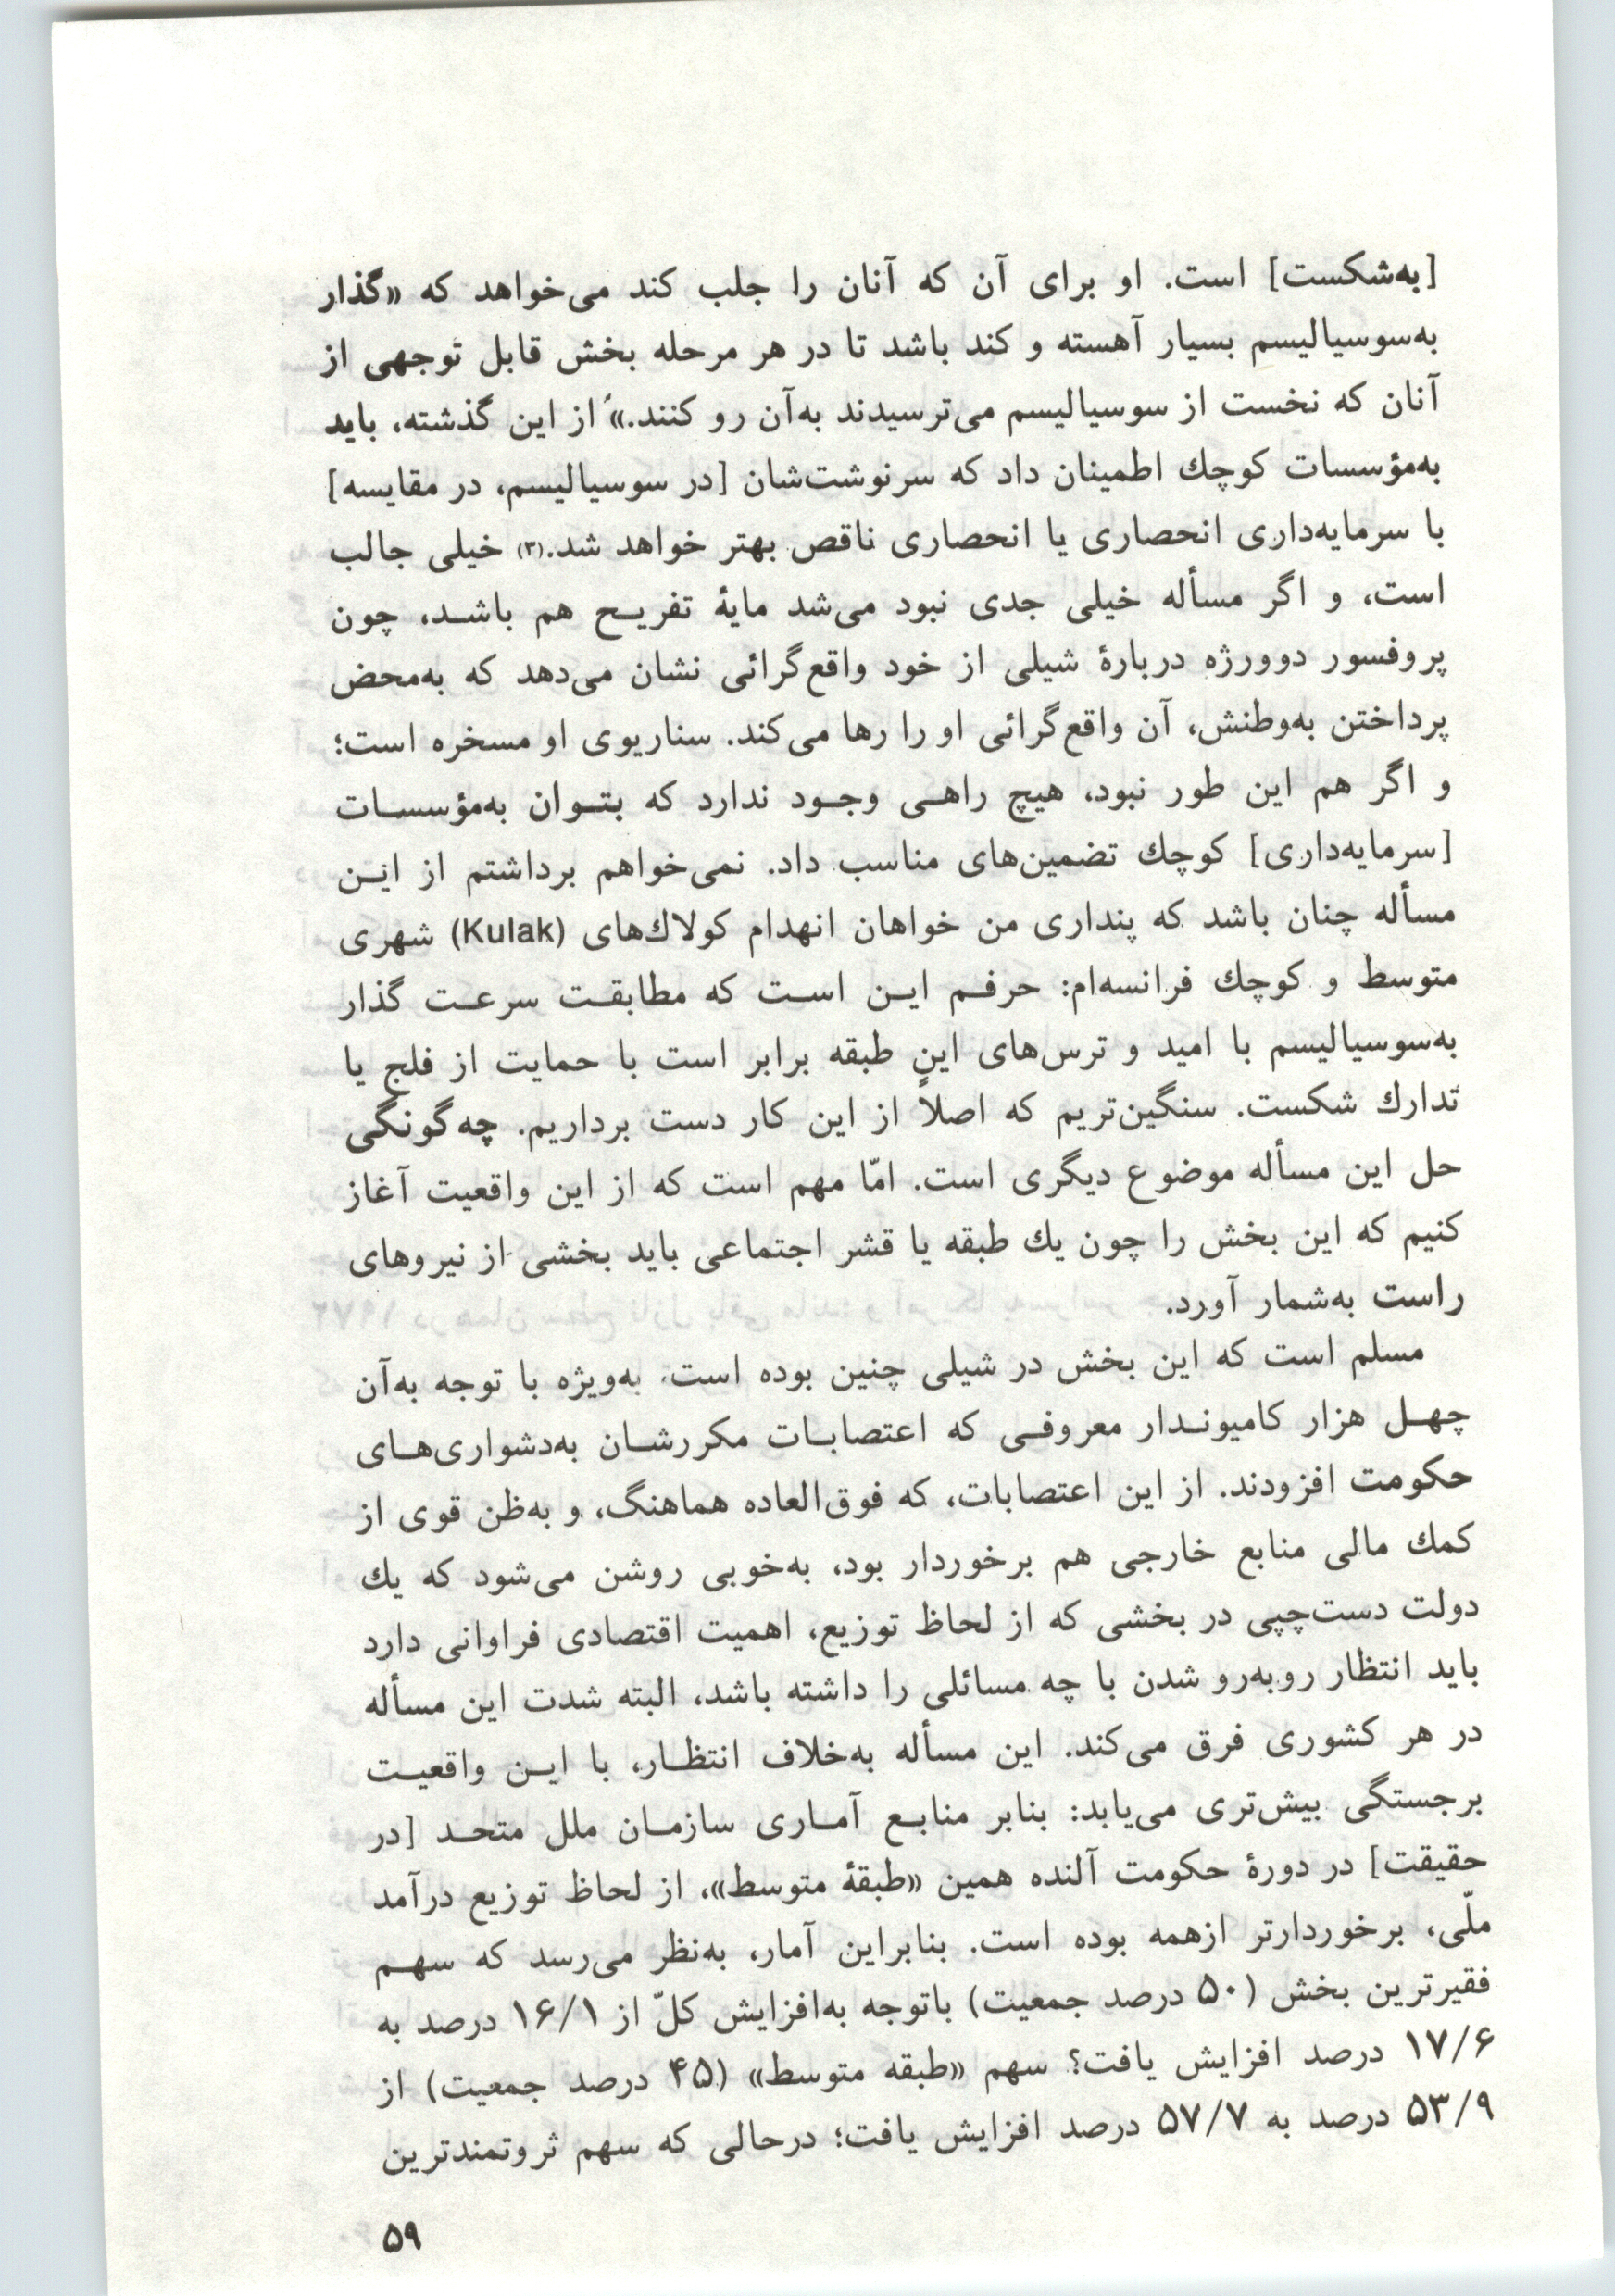 [به‌شکست] است. او برای آن که آنان را جلب کند می‌خواهد که «گذار
به‌سوسیالیسم بسیار آهسته و کند باشد تا در هر مرحله بخش قابل توجهی از
آنان که نخست از سوسیالیسم می‌ترسیدند به‌آن رو کنند.» از این گذشته، باید
به‌مؤسسات کوچك اطمینان داد که سرنوشت‌شان [در سوسیالیسم، در مقایسه]
با سرمایه‌داری انحصاری یا انحصاری ناقص بهتر خواهد شد.(۳) خیلی جالب
است، و اگر مسأله خیلی جدی نبود می‌شد مایهٔ تفریـح هم باشـد، چون
پروفسور دوورژه دربارهٔ شیلی از خود واقع‌گرائی نشان می‌دهد که به‌محض
پرداختن به‌وطنش، آن واقع‌گرائی او را رها می‌کند. سناریوی او مسخره است؛
و اگر هم این طور نبود، هیچ راهـی وجـود ندارد که بتـوان به‌مؤسسـات
[سرمایه‌داری] کوچك تضمین‌های مناسب داد. نمی‌خواهم برداشتم از ایـن
مسأله چنان باشد که پنداری من خواهان انهدام کولاك‌های (Kulak) شهری
متوسط و کوچك فرانسه‌ام: حرفـم ایـن اسـت که مطابقـت سرعـت گذار
به‌سوسیالیسم با امید و ترس‌های این طبقه برابر است با حمایت از فلج یا
تدارك شکست. سنگین‌تریم که اصلاً از این کار دست برداریم. چه‌گونگی
حل این مسأله موضوع دیگری است. امّا مهم است که از این واقعیت آغاز
کنیم که این بخش را چون یك طبقه یا قشر اجتماعی باید بخشی از نیروهای
راست به‌شمار آورد.
مسلم است که این بخش در شیلی چنین بوده است، به‌ویژه با توجه به‌آن
چهـل هزار کامیونـدار معروفـی که اعتصابـات مکررشـان به‌دشواری‌هـای
حکومت افزودند. از این اعتصابات، که فوق‌العاده هماهنگ، و به‌ظن قوی از
کمك مالی منابع خارجی هم برخوردار بود، به‌خوبی روشن می‌شود که یك
دولت دست‌چپی در بخشی که از لحاظ توزیع، اهمیت اقتصادی فراوانی دارد
باید انتظار روبه‌رو شدن با چه مسائلی را داشته باشد، البته شدت این مسأله
در هر کشوری فرق می‌کند. این مسأله به‌خلاف انتظـار، با ایـن واقعیـت
برجستگی بیش‌تری می‌یابد: بنابر منابـع آمـاری سازمـان ملل متحـد [در
حقیقت] در دورهٔ حکومت آلنده همین «طبقهٔ متوسط»، از لحاظ توزیع درآمد
ملّی، برخوردارتر ازهمه بوده است. بنابراین آمار، به‌نظر می‌رسد که سهـم
فقیرترین بخش (۵۰ درصد جمعیت) باتوجه به‌افزایش کلّ از ۱۶/۱ درصد به
۱۷/۶ درصد افزایش یافت؟ سهم «طبقه متوسط» (۴۵ درصد جمعیت) از
۵۳/۹ درصد به ۵۷/۷ درصد افزایش یافت؛ درحالی که سهم ثروتمندترین
۵۹